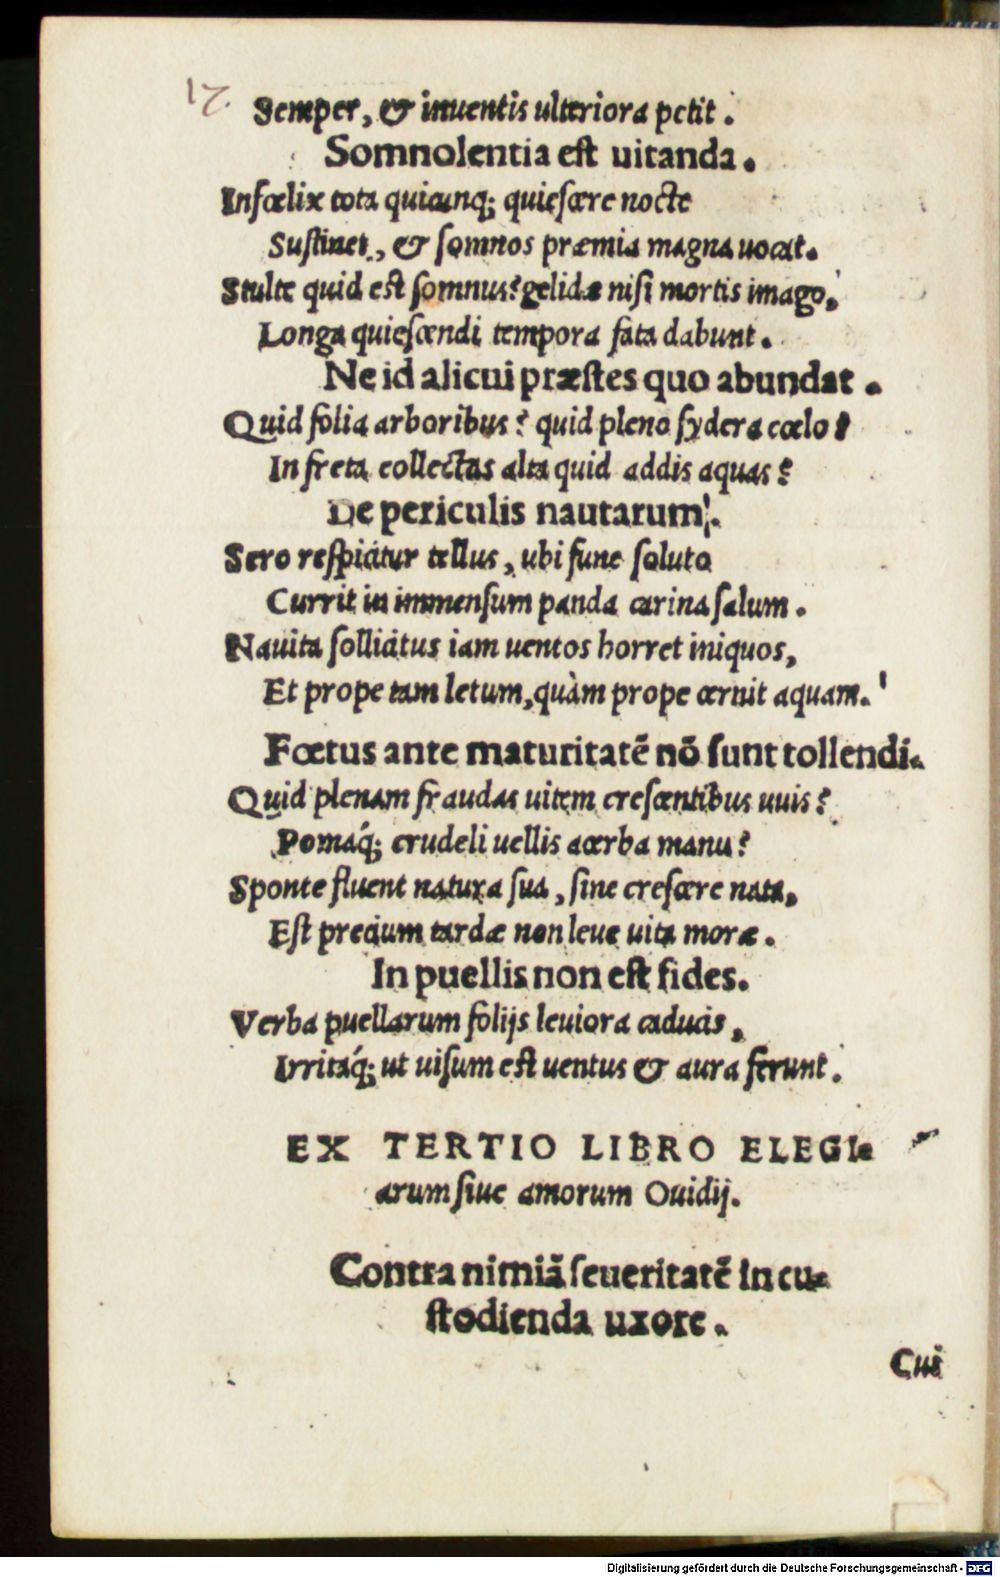 17.
Semper, & inuentis ulteriora petit.
Somnolentia est uitanda.
Infœlix tota quicunq; quiescere nocte
Sustinet, & somnos præmia magna uocat.
Stulte quid est somnus? gelidæ nisi mortis imago,
Longa quiescendi tempora fata dabunt.
Ne id alicui præstes quo abundat.
Quid folia arboribus? quid pleno sydera cœlo?
In freta collectas alta quid addis aquas?
De periculis nautarum.
Sero respicitur tellus, ubi fune soluto
Currit in immensum panda carina salum.
Nauita sollicitus iam uentos horret iniquos,
Et prope tam letum, quàm prope cernit aquam.
Fœtus ante maturitatē nō sunt tollendi.
Quid plenam fraudas uitem crescentibus uuis?
Pomáq; crudeli uellis acerba manu?
Sponte fluent natura sua, sine crescere nata,
Est precium tardæ non leue uita moræ.
In puellis non est fides.
Verba puellarum folijs leuiora caducis,
Irritáq; ut uisum est uentus & aura ferunt.
EX TERTIO LIBRO ELEGI-
arum siue amorum Ouidij.
Contra nimiā seueritatē in cu-
stodienda uxore.
Cui
Digitalisierung gefördert durch die Deutsche Forschungsgemeinschaft - DFG